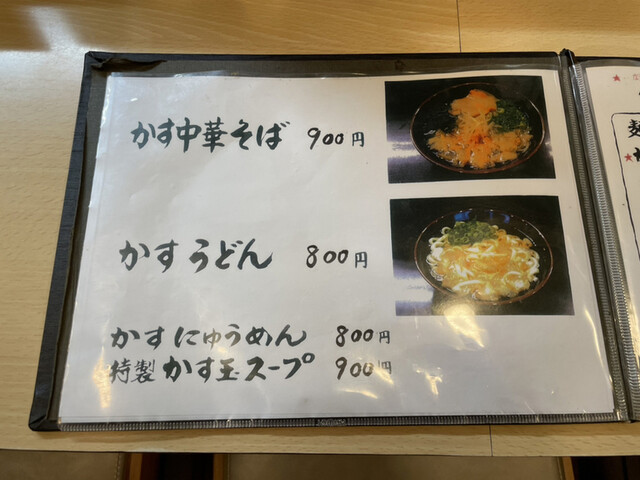 かす中華そば 900円
かすうどん 800円
かすにゅうめん 800円
特製かす玉スープ 900円